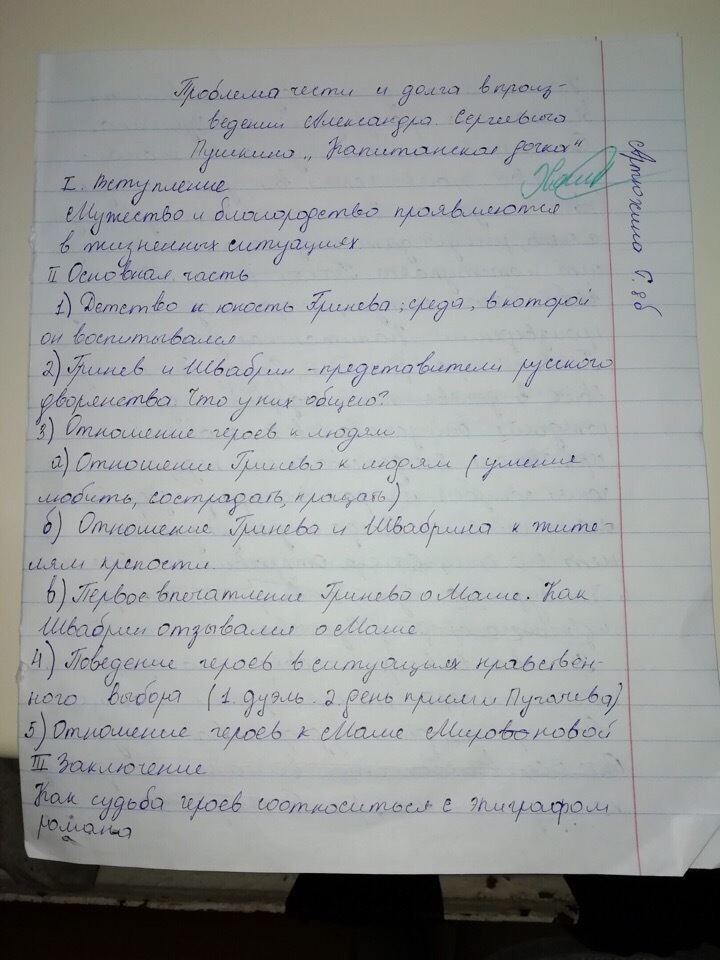 Проблема чести и долга в произ-
ведении Александра Сергеевича
Пушкина „Капитанская дочка"
I. Вступление
Мужество и благородство проявляются
в жизненных ситуациях
II Основная часть
1) Детство и юность Гринева; среда, в которой
он воспитывался
2) Гринев и Швабрин - представители русского
дворянства. Что у них общего?
3) Отношение героев к людям
а) Отношение Гринева к людям (умение
любить, сострадать, прощать)
б) Отношение Гринева и Швабрина к жите-
лям крепости.
в) Первое впечатление Гринева о Маше. Как
Швабрин отзывался о Маше
4) Поведение героев в ситуациях нравствен-
ного выбора (1. дуэль. 2. день присяги Пугачева)
5) Отношение героев к Маше Мироновой
III Заключение
Как судьба героев соотноситься с эпиграфом
романа
Артюхина 8б